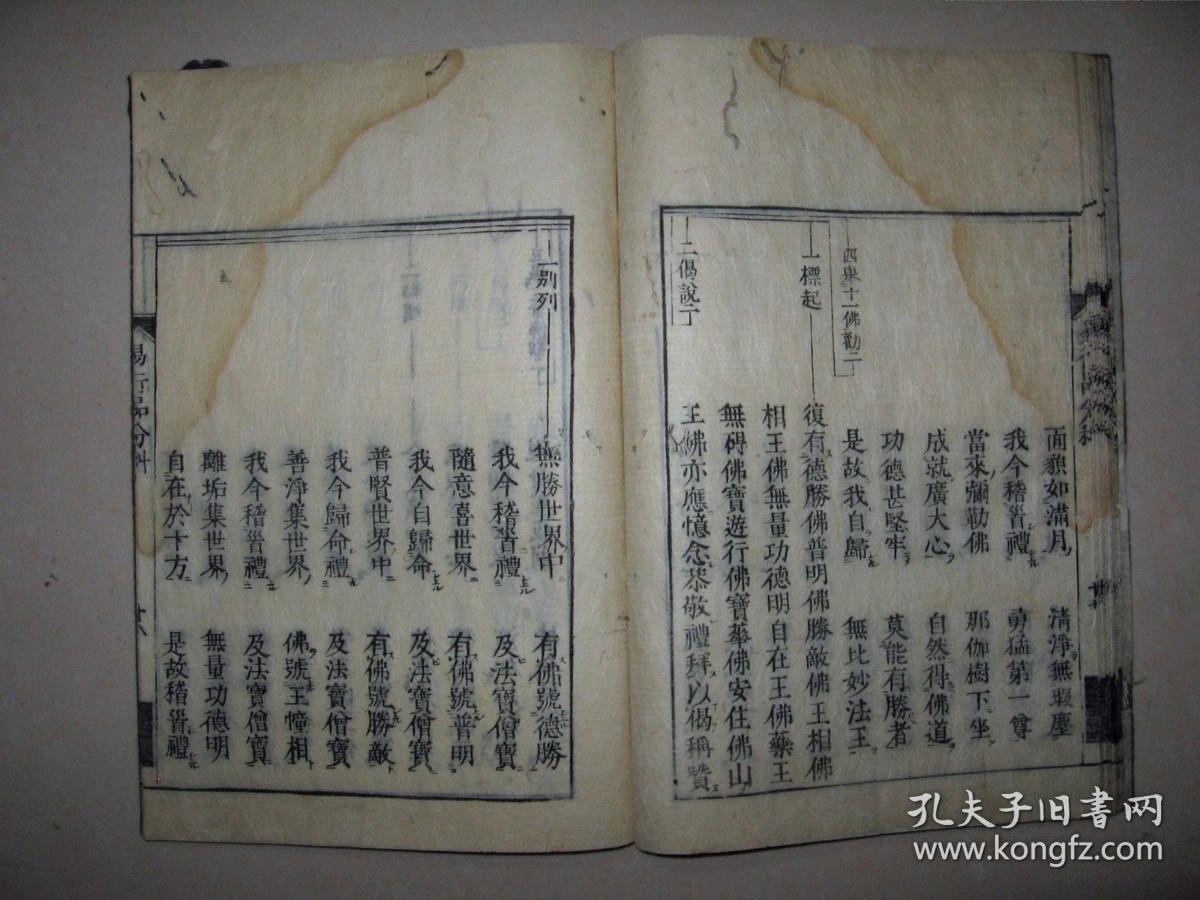 面貌如滿月 清淨無瑕塵
我今稽首禮 勇猛第一尊
當來彌勒佛 那伽樹下坐
成就廣大心 自然得佛道
功德甚堅牢 莫能有勝者
是故我自歸 無比妙法王
四舉十一佛勸二
一標起
復有德勝佛普明佛勝敵佛王相佛
相王佛無量功德明自在王佛藥王
無碍佛寶遊行佛寶華佛安住佛山
王佛亦應憶念恭敬禮拜以偈稱贊
二偈說二
一別列
無勝世界中 有佛號德勝
我今稽首禮 及法寶僧寶
隨意喜世界 有佛號普明
我今自歸命 及法寶僧寶
普賢世界中 有佛號勝敵
我今歸命禮 及法寶僧寶
善淨集世界 佛號王幢相
我今稽首禮 及法寶僧寶
離垢集世界 無量功德明
自在於十方 是故稽首禮
易行品分科
十八
孔夫子旧書网
www.kongfz.com